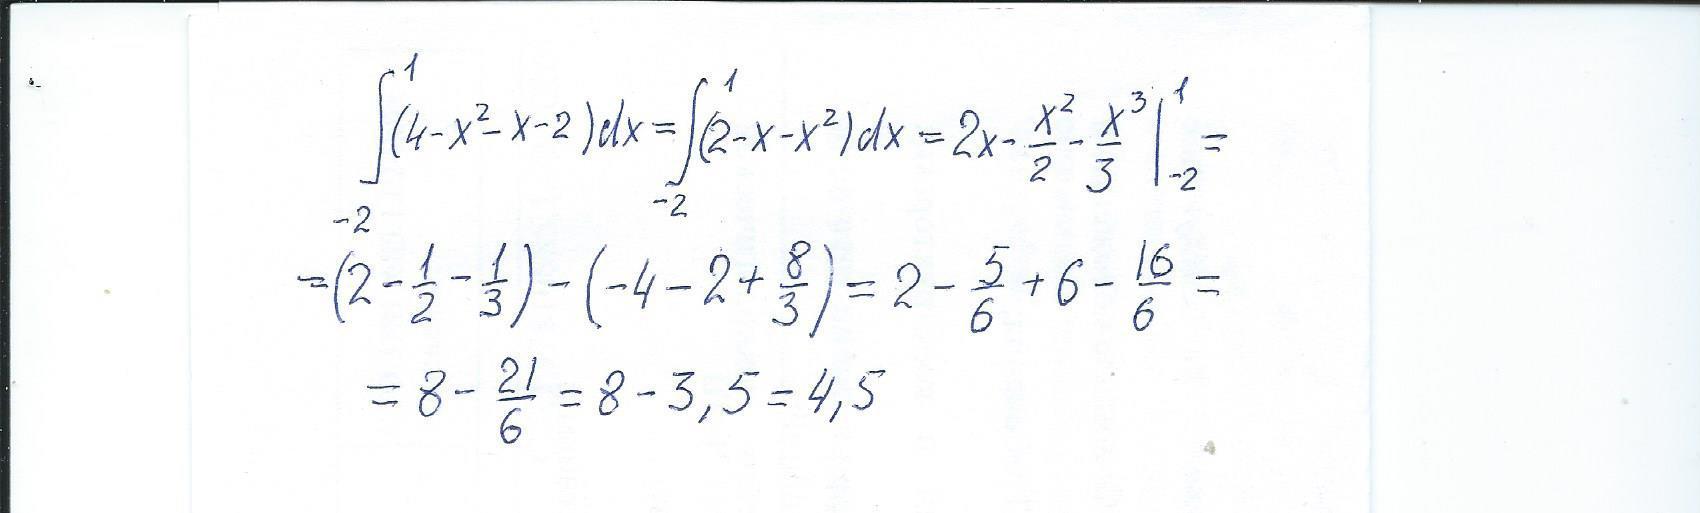 ∫₋₂¹(4-x²-x-2)dx = ∫₋₂¹(2-x-x²)dx = 2x - x²/2 - x³/3 |₋₂¹ =
= (2 - 1/2 - 1/3) - (-4 - 2 + 8/3) = 2 - 5/6 + 6 - 16/6 =
= 8 - 21/6 = 8 - 3,5 = 4,5